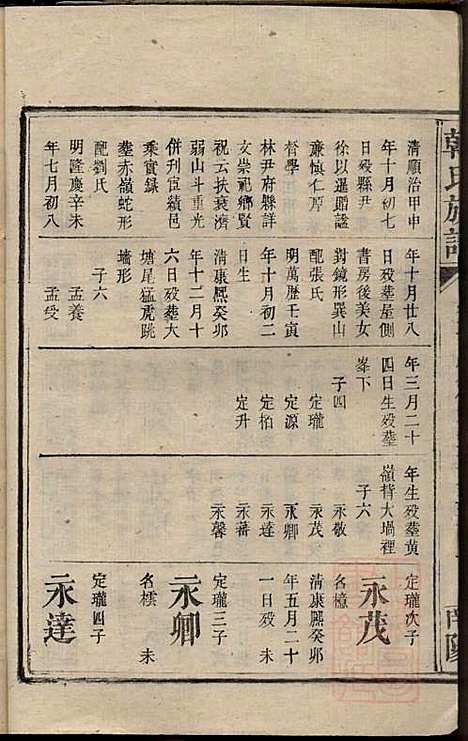 韓氏族譜
南陽
清順治甲申
年十月初七
日殁縣尹
徐以暹贈諡
兼慎仁厚
督學
林尹府縣詳
文崇祀鄉賢
祝云扶衰濟
弱山斗重光
併刋宦績邑
乘實録
塟赤嶺蛇形
配劉氏
明隆慶辛未
年七月初八
年十月廿八
日殁塟屋側
書房後美女
對鏡形巽山
配張氏
明萬歷壬寅
年十月初二
日生
清康熙癸卯
年十二月十
六日殁塟大
塘尾猛虎跳
墻形
子六
孟養
孟受
年三月二十
四日生殁塟
峯下
子四
定瓏
定源
定栢
定升
年生殁塟黄
嶺背大堝裡
子六
永敬
永茂
永卿
永達
永蕃
永馨
定瓏次子
永茂
名樟
清康熙癸卯
年五月二十
一日殁 未
定瓏三子
永卿
名標 未
定瓏四子
永達